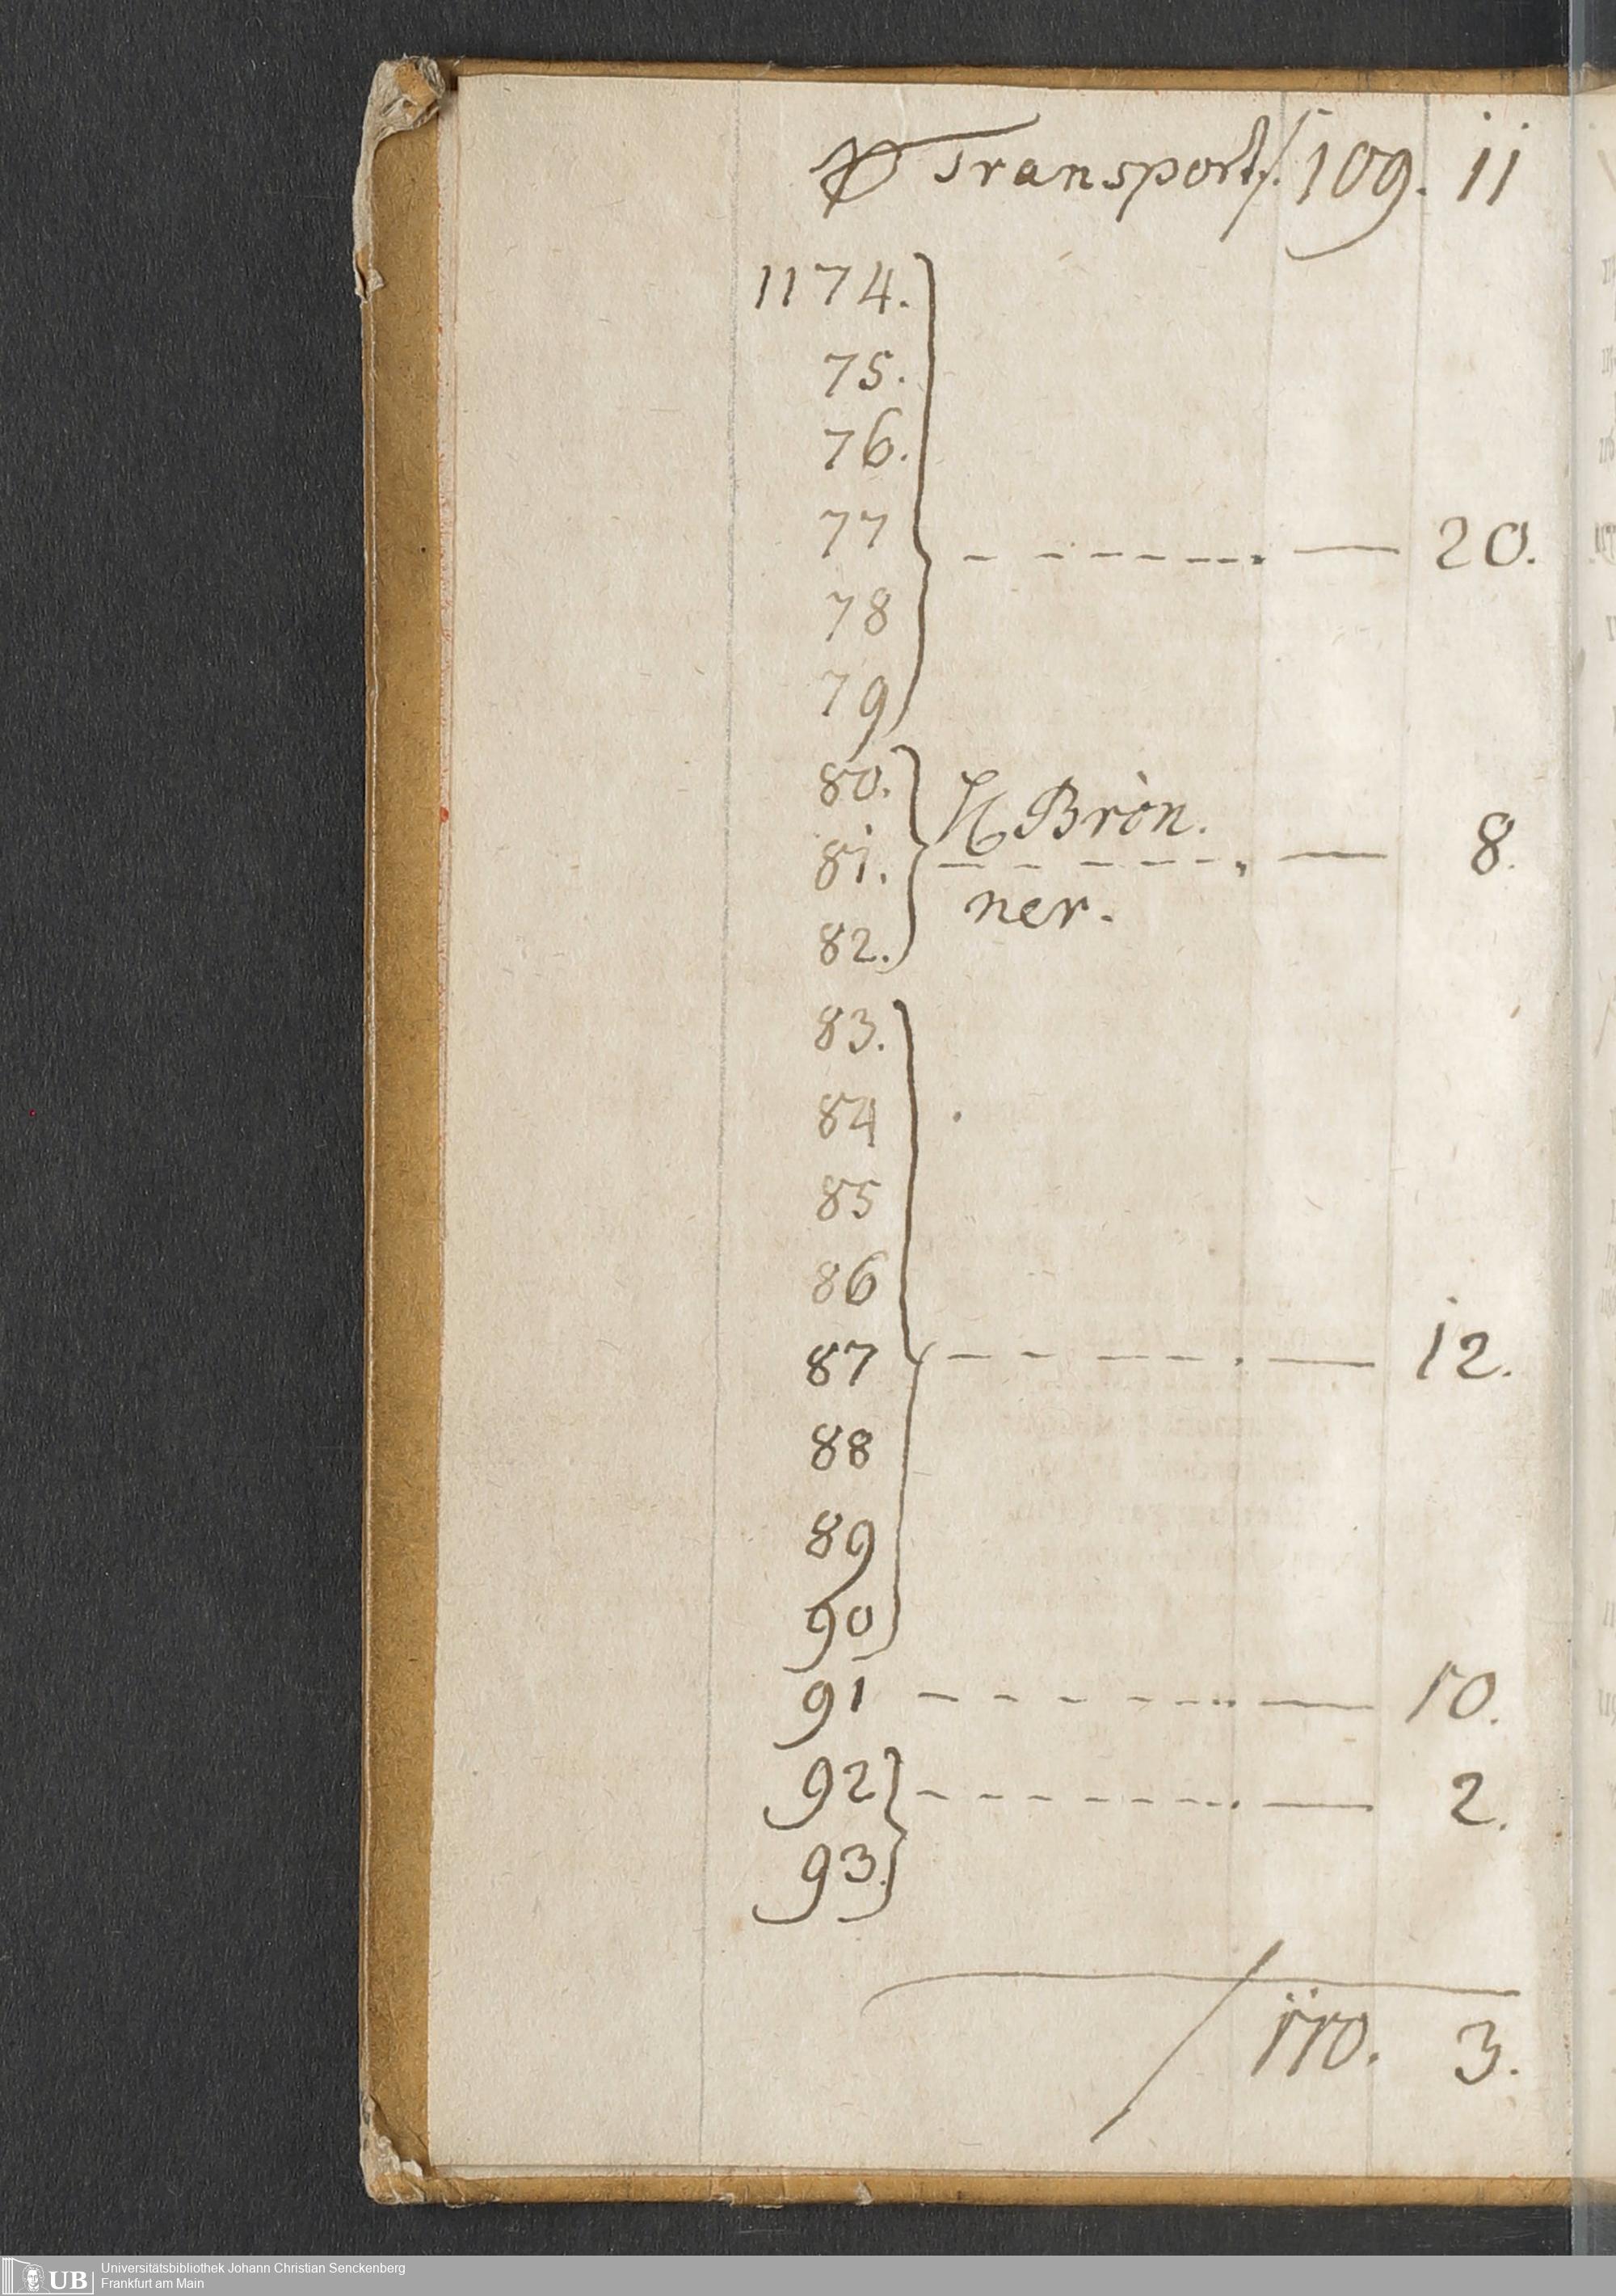 Transport f. 109. 11
1174.
75.
76.
77 — 20.
78
79
80.
H Brön.
81. — 8.
ner.
82.
83.
84
85
86
87 — 12.
88
89
90
91 — 10.
92 — 2.
93.
f 110. 3.
UB Universitätsbibliothek Johann Christian Senckenberg
Frankfurt am Main